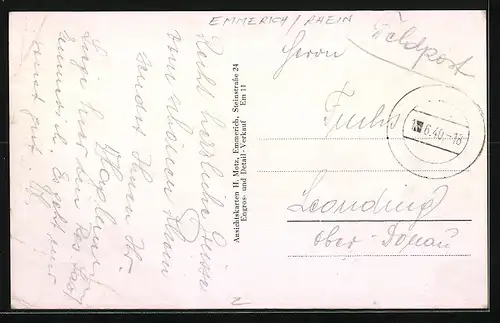 EMMERICH/RHEIN
Feldpost
Herrn
Fuchs
Leonding
Ober-Donau
6.40.-18
Ansichtskarten H. Metz, Emmerich, Steinstraße 24
Engros- und Detail-Verkauf Em 11
Recht herzliche Grüsse
vom schönen Rhein
sendet Ihnen Ihr
Liege hier in
Emmerich. Es geht mir
sonst gut.